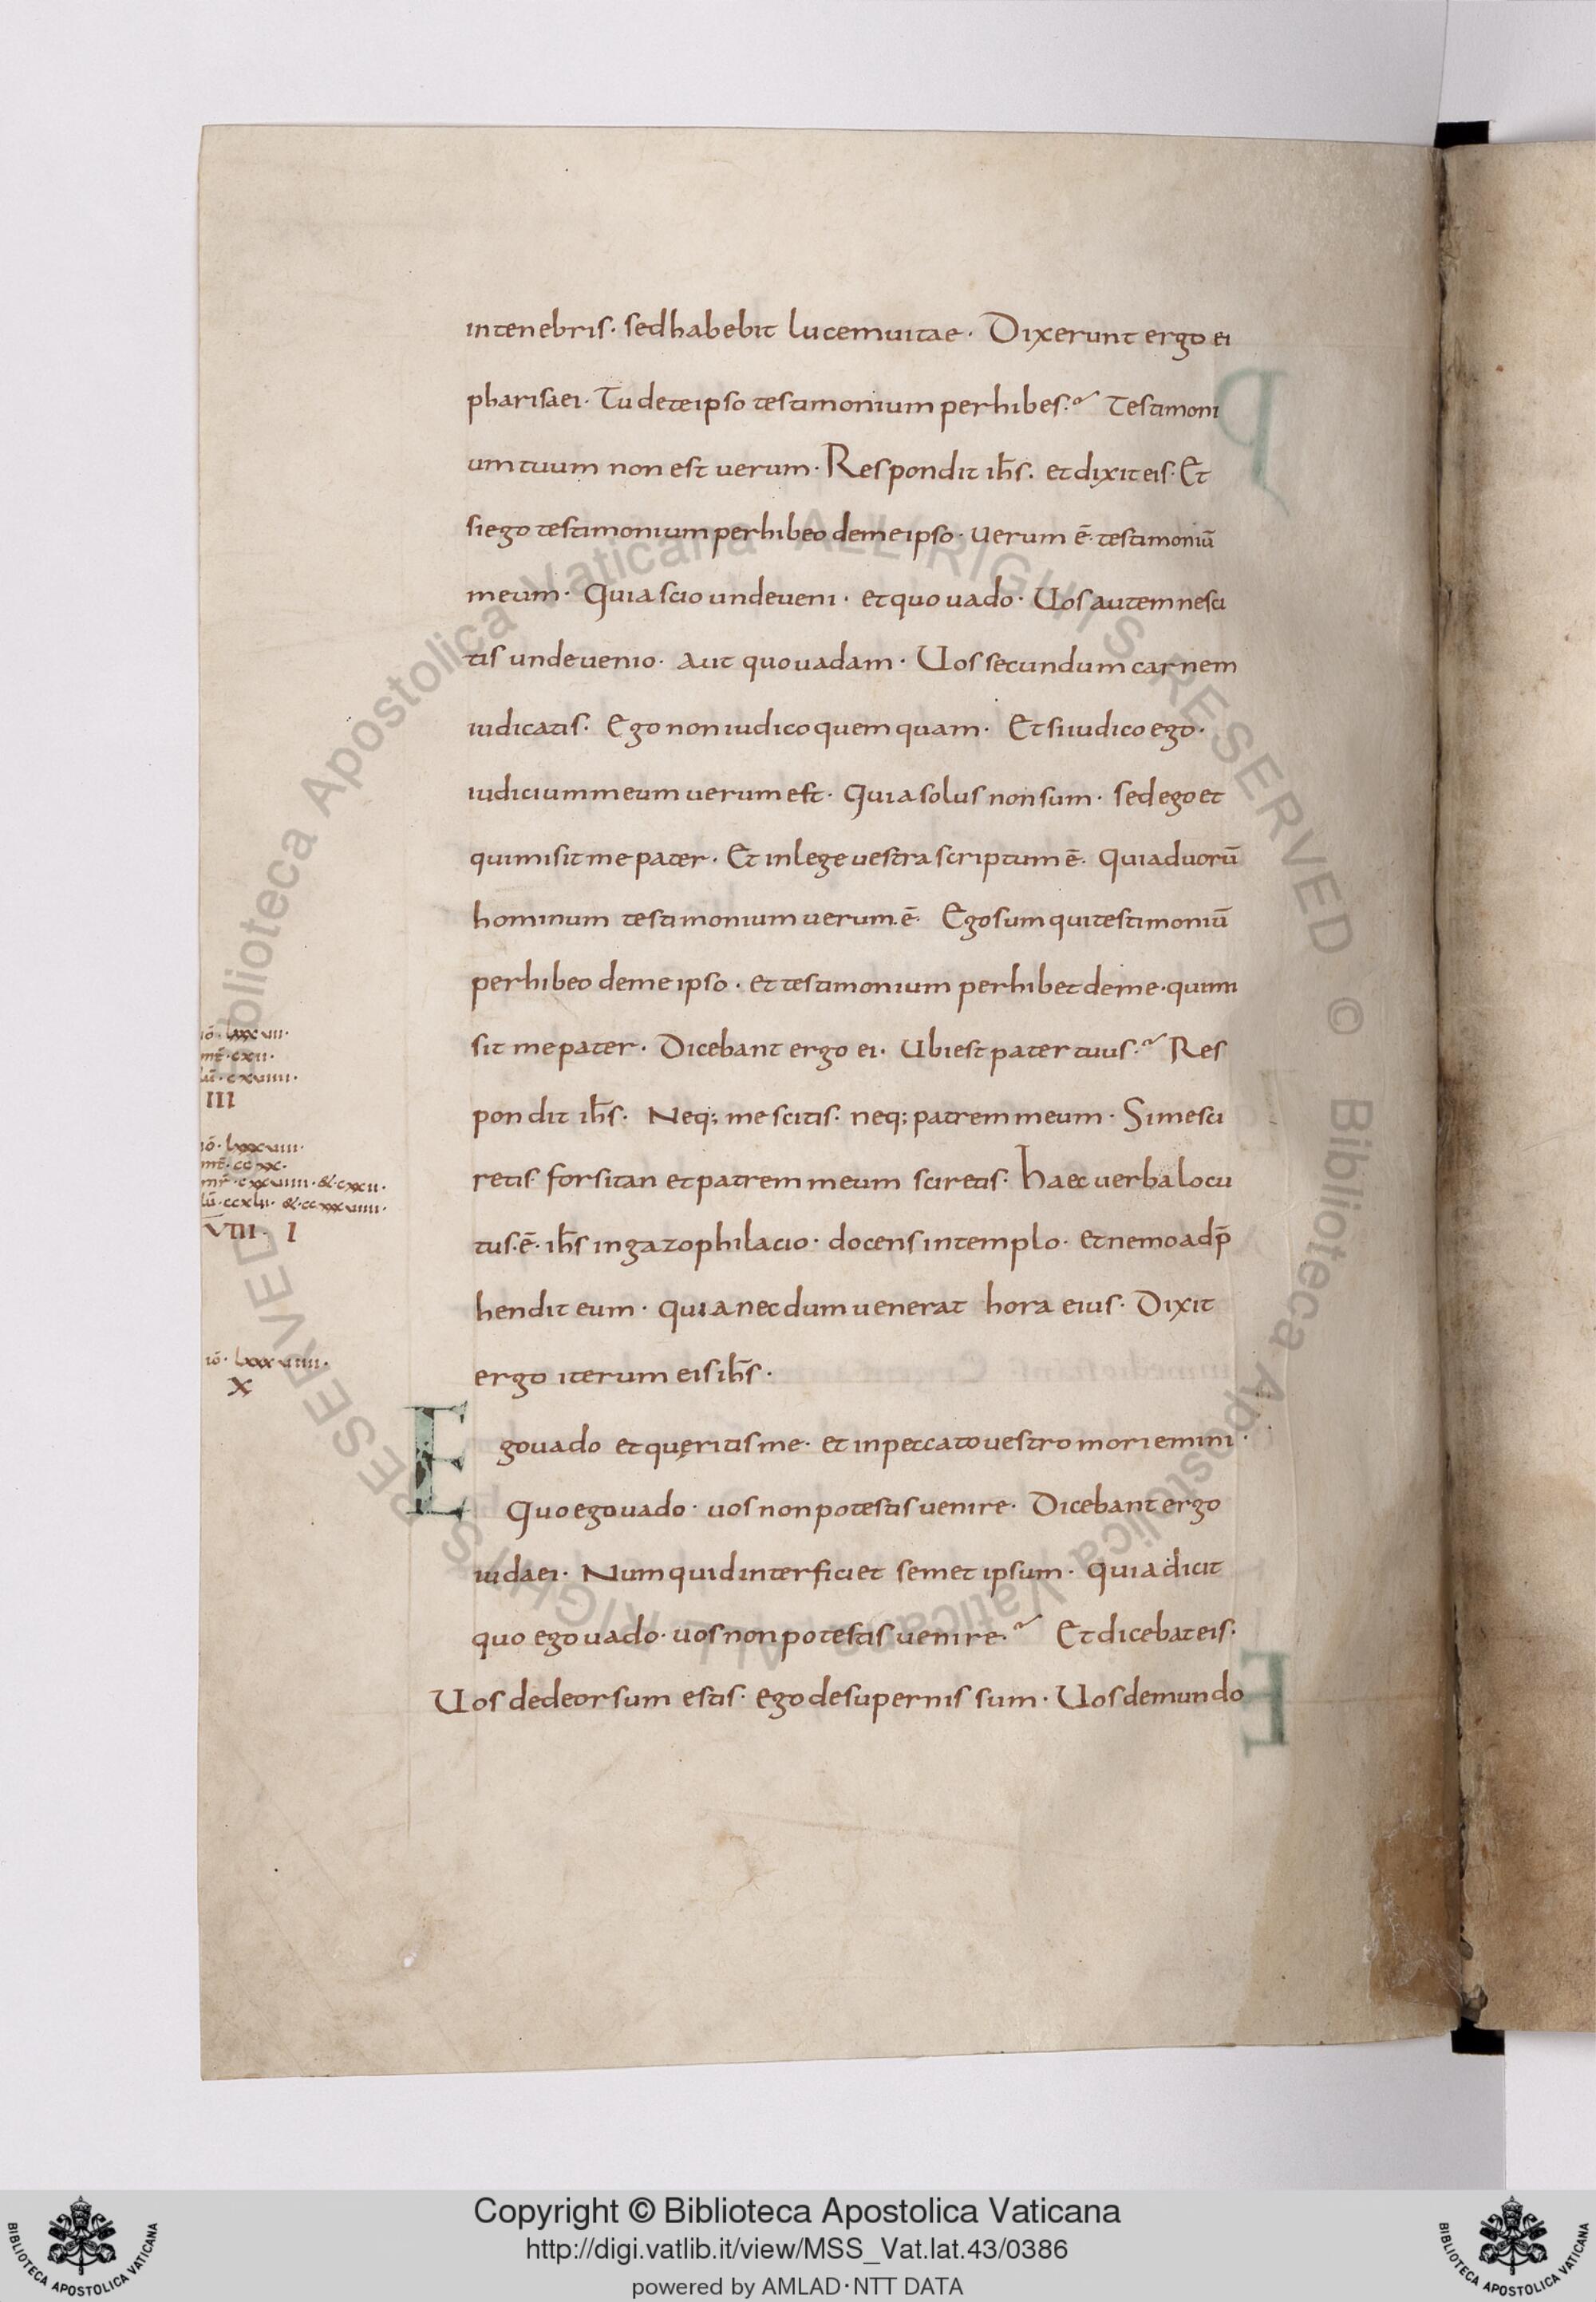 in tenebris· sed habebit lucem uitae· Dixerunt ergo ei
pharisaei· Tu de te ipso testimonium perhibes· Testimoni
um tuum non est uerum· Respondit ih̅s· et dixit eis· Et
si ego testimonium perhibeo de me ipso· uerum ē· testimoniū
meum· Quia scio unde ueni· et quo uado· Uos autem nesci
tis unde uenio· aut quo uadam· Uos secundum carnem
iudicatis· Ego non iudico quemquam· Et si iudico ego·
iudicium meum uerum est· Quia solus non sum· sed ego et
qui misit me pater· Et in lege uestra scriptum ē· Quia duorū
hominum testimonium uerum ē· Ego sum qui testimoniū
perhibeo de me ipso· et testimonium perhibet de me· qui mi
sit me pater· Dicebant ergo ei· Ubi est pater tuus· Res
pondit ih̅s· Neq; me scitis· neq; patrem meum· Si me sci
retis· forsitan et patrem meum sciretis· Haec uerba locu
tus·ē· ih̅s in gazophilacio· docens in templo· et nemo adp̄
hendit eum· quia necdum uenerat hora eius· Dixit
ergo iterum eis ih̅s·
Ego uado et quęritis me· et in peccato uestro moriemini·
Quo ego uado· uos non potestis uenire· Dicebant ergo
iudaei· Numquid interficiet semet ipsum· quia dicit
quo ego uado· uos non potestis uenire· Et dicebat eis·
Uos de deorsum estis· ego de supernis sum· Uos de mundo
iō· lxxxvii·
mr̄· cxii·
lū· cxviiii·
III
iō· lxxxviii·
mt̄· ccxx·
mr̄· cxxviiii· & cxxii·
lū· ccxlii· & ccxxxviiii·
VIII· I
iō· lxxxviiii·
X
Biblioteca Apostolica Vaticana ALL RIGHTS RESERVED © Biblioteca Apostolica Vaticana ALL RIGHTS RESERVED
Copyright © Biblioteca Apostolica Vaticana
http://digi.vatlib.it/view/MSS_Vat.lat.43/0386
powered by AMLAD·NTT DATA
BIBLIOTECA APOSTOLICA VATICANA
BIBLIOTECA APOSTOLICA VATICANA